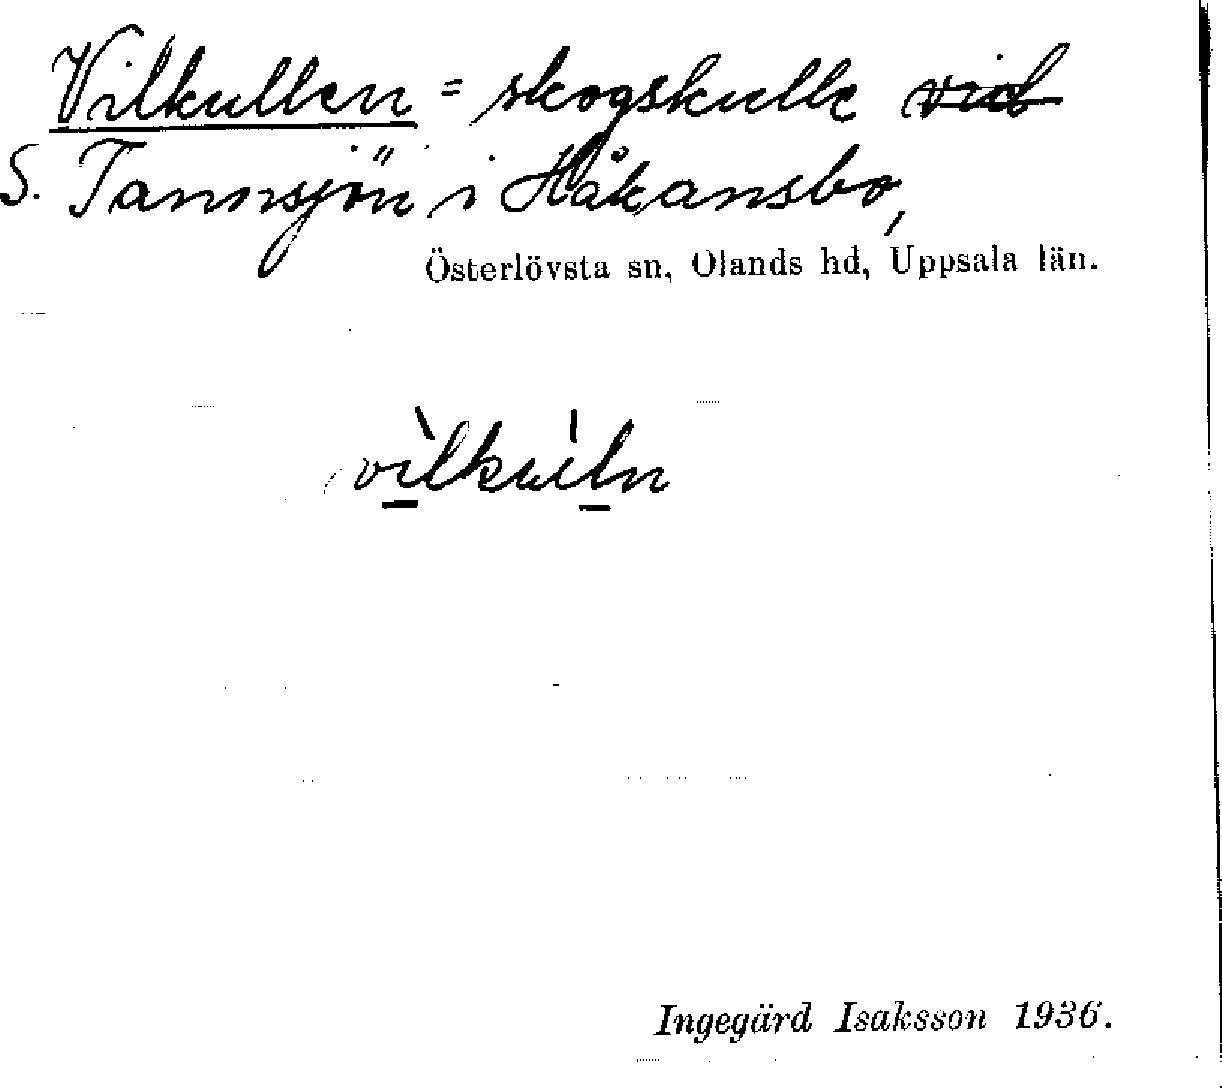 Vilkullen = skogskulle vid
S. Tannsjön i Håkansbo,
Österlövsta sn, Olands hd, Uppsala län.
vìlkuln
Ingegärd Isaksson 1936.